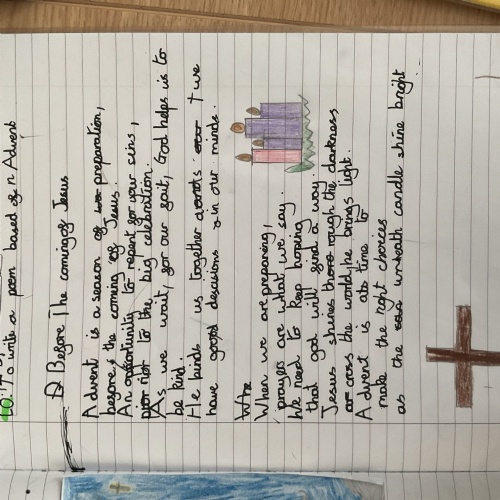 LO: To write a poem based on Advent
Before The coming of Jesus
Advent is a season of preparation,
before the coming of Jesus.
An opportunity to repent for your sins,
prior to the big celebration.
As we wait, for our gait, God helps is to
be kind.
He binds us together we
have good descisions in our minds.
Whe
When we are preparing,
prayers are what we say.
We need to keep hoping
that god will find a way.
Jesus shines through the darkness
across the world, he brings light.
Advent is a time to
make the right choices
as the wreath candle shine bright